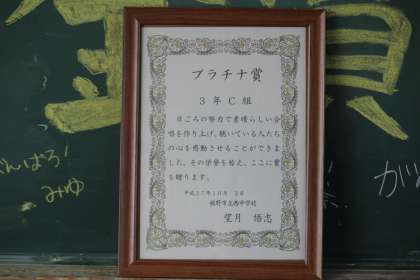 賞
プラチナ賞
3年C組
日ごろの努力で素晴らしい合
唱を作り上げ、聴いている人たち
の心を感動させることができま
した。その栄誉を称え、ここに賞
を贈ります。
平成27年10月
裾野市立西中学校
望月 悟志
がんばろ!
みゆ